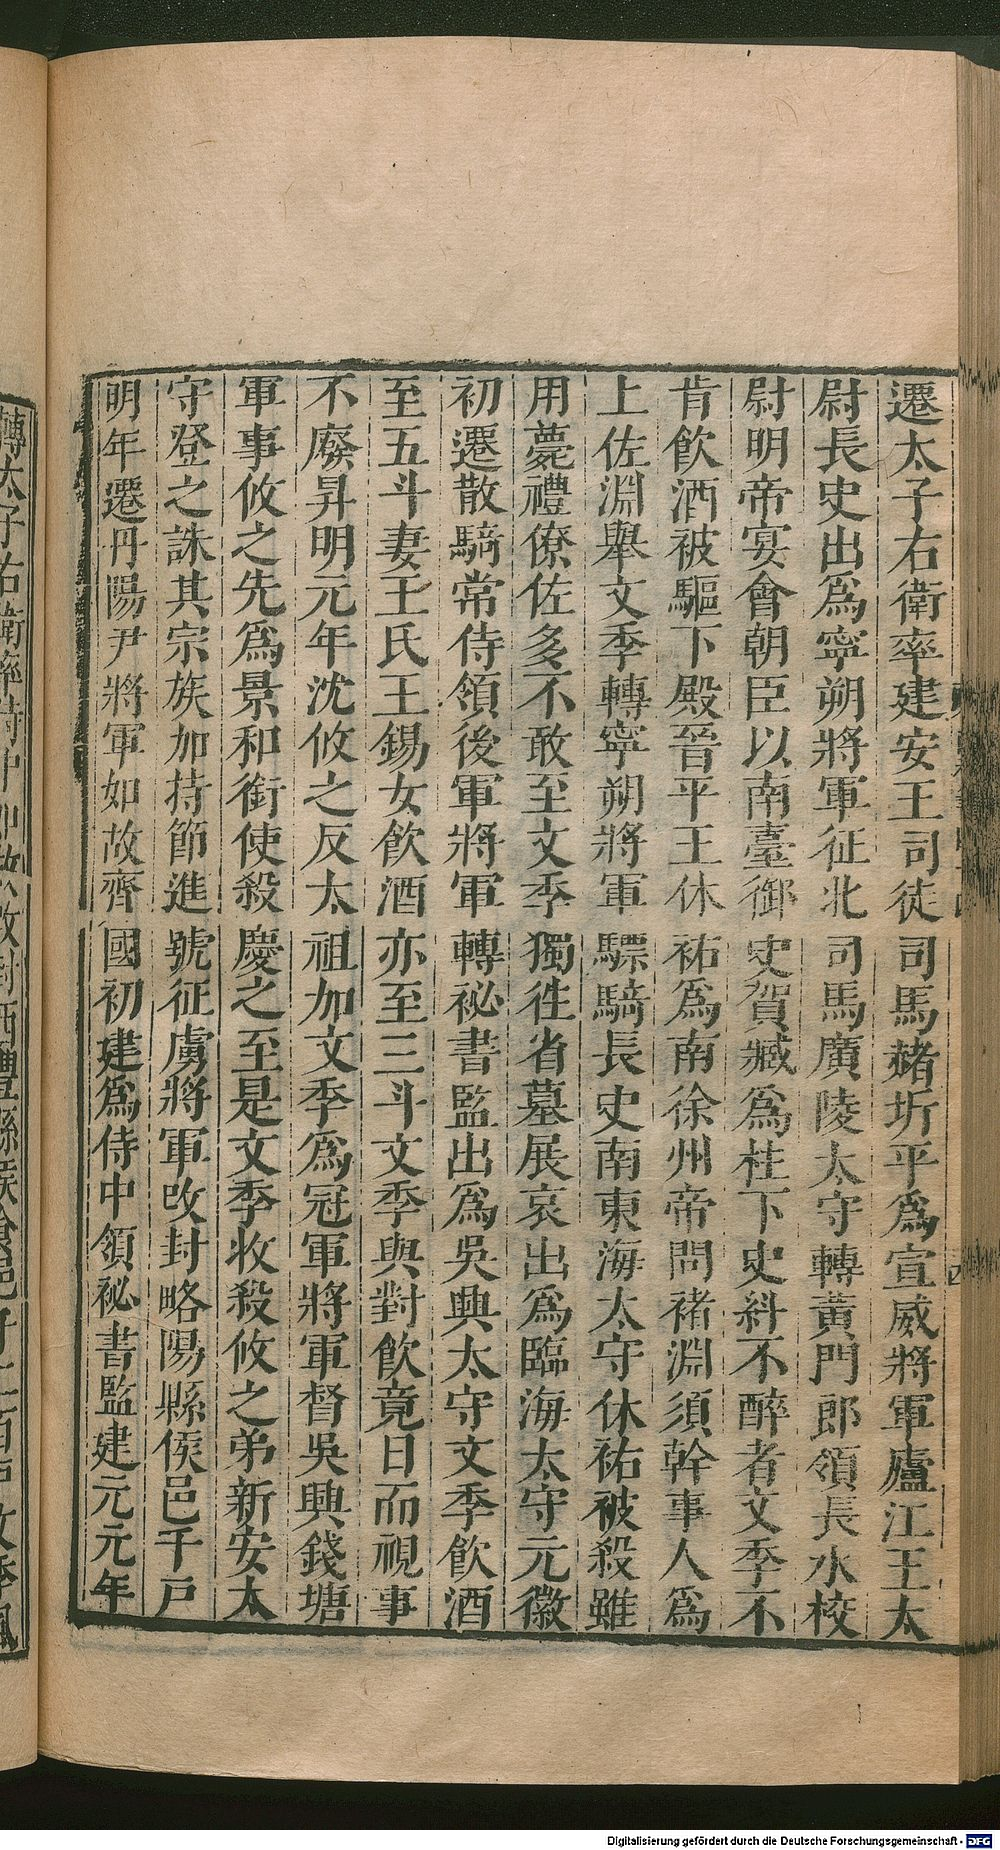 遷太子右衛率建安王司徒司馬赭圻平爲宣威將軍廬江王太
尉長史出爲寧朔將軍征北司馬廣陵太守轉黃門郎領長水校
尉明帝宴會朝臣以南臺御史賀臧爲柱下史糾不醉者文季不
肯飲酒被驅下殿晉平王休祐爲南徐州帝問褚淵須幹事人爲
上佐淵舉文季轉寧朔將軍驃騎長史南東海太守休祐被殺雖
用薨禮僚佐多不敢至文季獨徃省墓展哀出爲臨海太守元徽
初遷散騎常侍領後軍將軍轉祕書監出爲吳興太守文季飲酒
至五斗妻王氏王錫女飲酒亦至三斗文季與對飲竟日而視事
不廢昇明元年沈攸之反太祖加文季爲冠軍將軍督吳興錢塘
軍事攸之先爲景和銜使殺慶之至是文季收殺攸之弟新安太
守登之誅其宗族加持節進號征虜將軍改封略陽縣侯邑千戶
明年遷丹陽尹將軍如故齊國初建爲侍中領祕書監建元元年
轉太子右衛率侍中如故改封西豐縣侯食邑千二百戶文季風
Digitalisierung gefördert durch die Deutsche Forschungsgemeinschaft - DFG